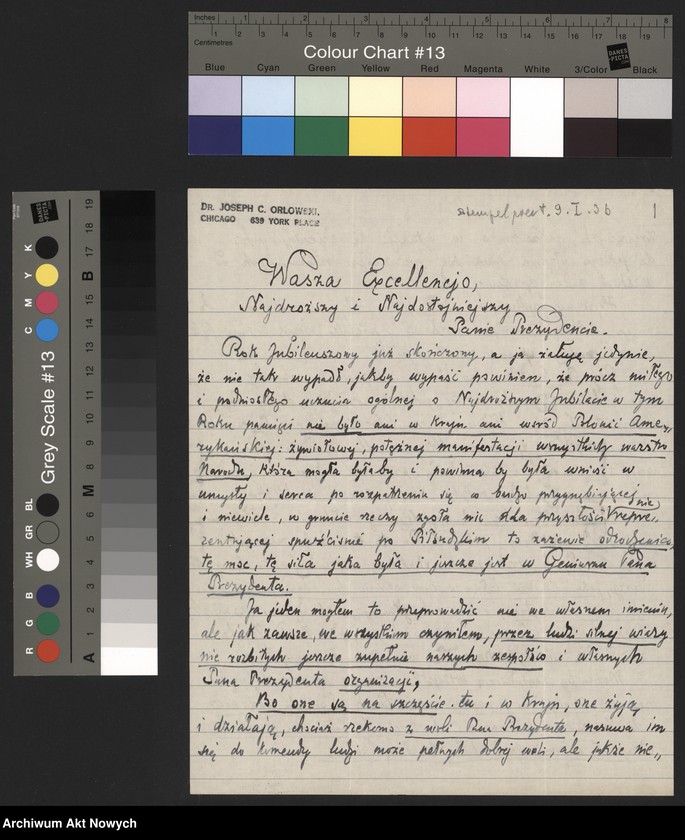 Inches 1 2 3 4 5 6 7 8
Centimetres 1 2 3 4 5 6 7 8 9 10 11 12 13 14 15 16 17 18 19
Colour Chart #13
DANES PICTA
Blue Cyan Green Yellow Red Magenta White 3/Color Black
Grey Scale #13
DANES PICTA
R G B WH GR BL C M Y K
A 1 2 3 4 5 6 M 8 9 10 11 12 13 14 15 B 17 18 19
DR. JOSEPH C. ORLOWSKI,
CHICAGO 639 YORK PLACE
stempel poczt. 9.I.36
1
Wasza Excellencjo,
Najdroższy i Najdostojniejszy
Panie Prezydencie.
Rok Jubileuszowy już skończony, a ja żałuję jedynie,
że nie tak wypadł, jakby wypaść powinien, że prócz miłego
i podniosłego uczucia ogólnej o Najdroższym Jubilacie w tym
Roku pamięci nie było ani w Kraju ani wśród Polonii Ame-
rykańskiej: żywiołowej, potężnej manifestacji wszystkich warstw
Narodu, która mogła byłaby i powinna by była wnieść w
umysły i serca po rozpatrzeniu się w
i niewiele, w gruncie rzeczy zgoła nic dla przyszłości nie repre-
zentującej spuściźnie po Piłsudskim to zarzewie odrodzenia,
tę moc, tę siłę jaka była i jeszcze jest w Geniuszu Pana
Prezydenta.
Ja jeden mogłem to przeprowadzić nie we własnem imieniu,
ale jak zawsze, we wszystkim czyniłem, przez ludzi silnej wiary
nie rozbitych jeszcze zupełnie naszych zespołów i własnych
Pana Prezydenta organizacji,
Bo one są na szczęście tu i w Kraju, one żyją
i działają, chociaż rzekomo z woli Pana Prezydenta, nasuwa im
się do komendy ludzi może pełnych dobrej woli, ale jakże nie-
Archiwum Akt Nowych